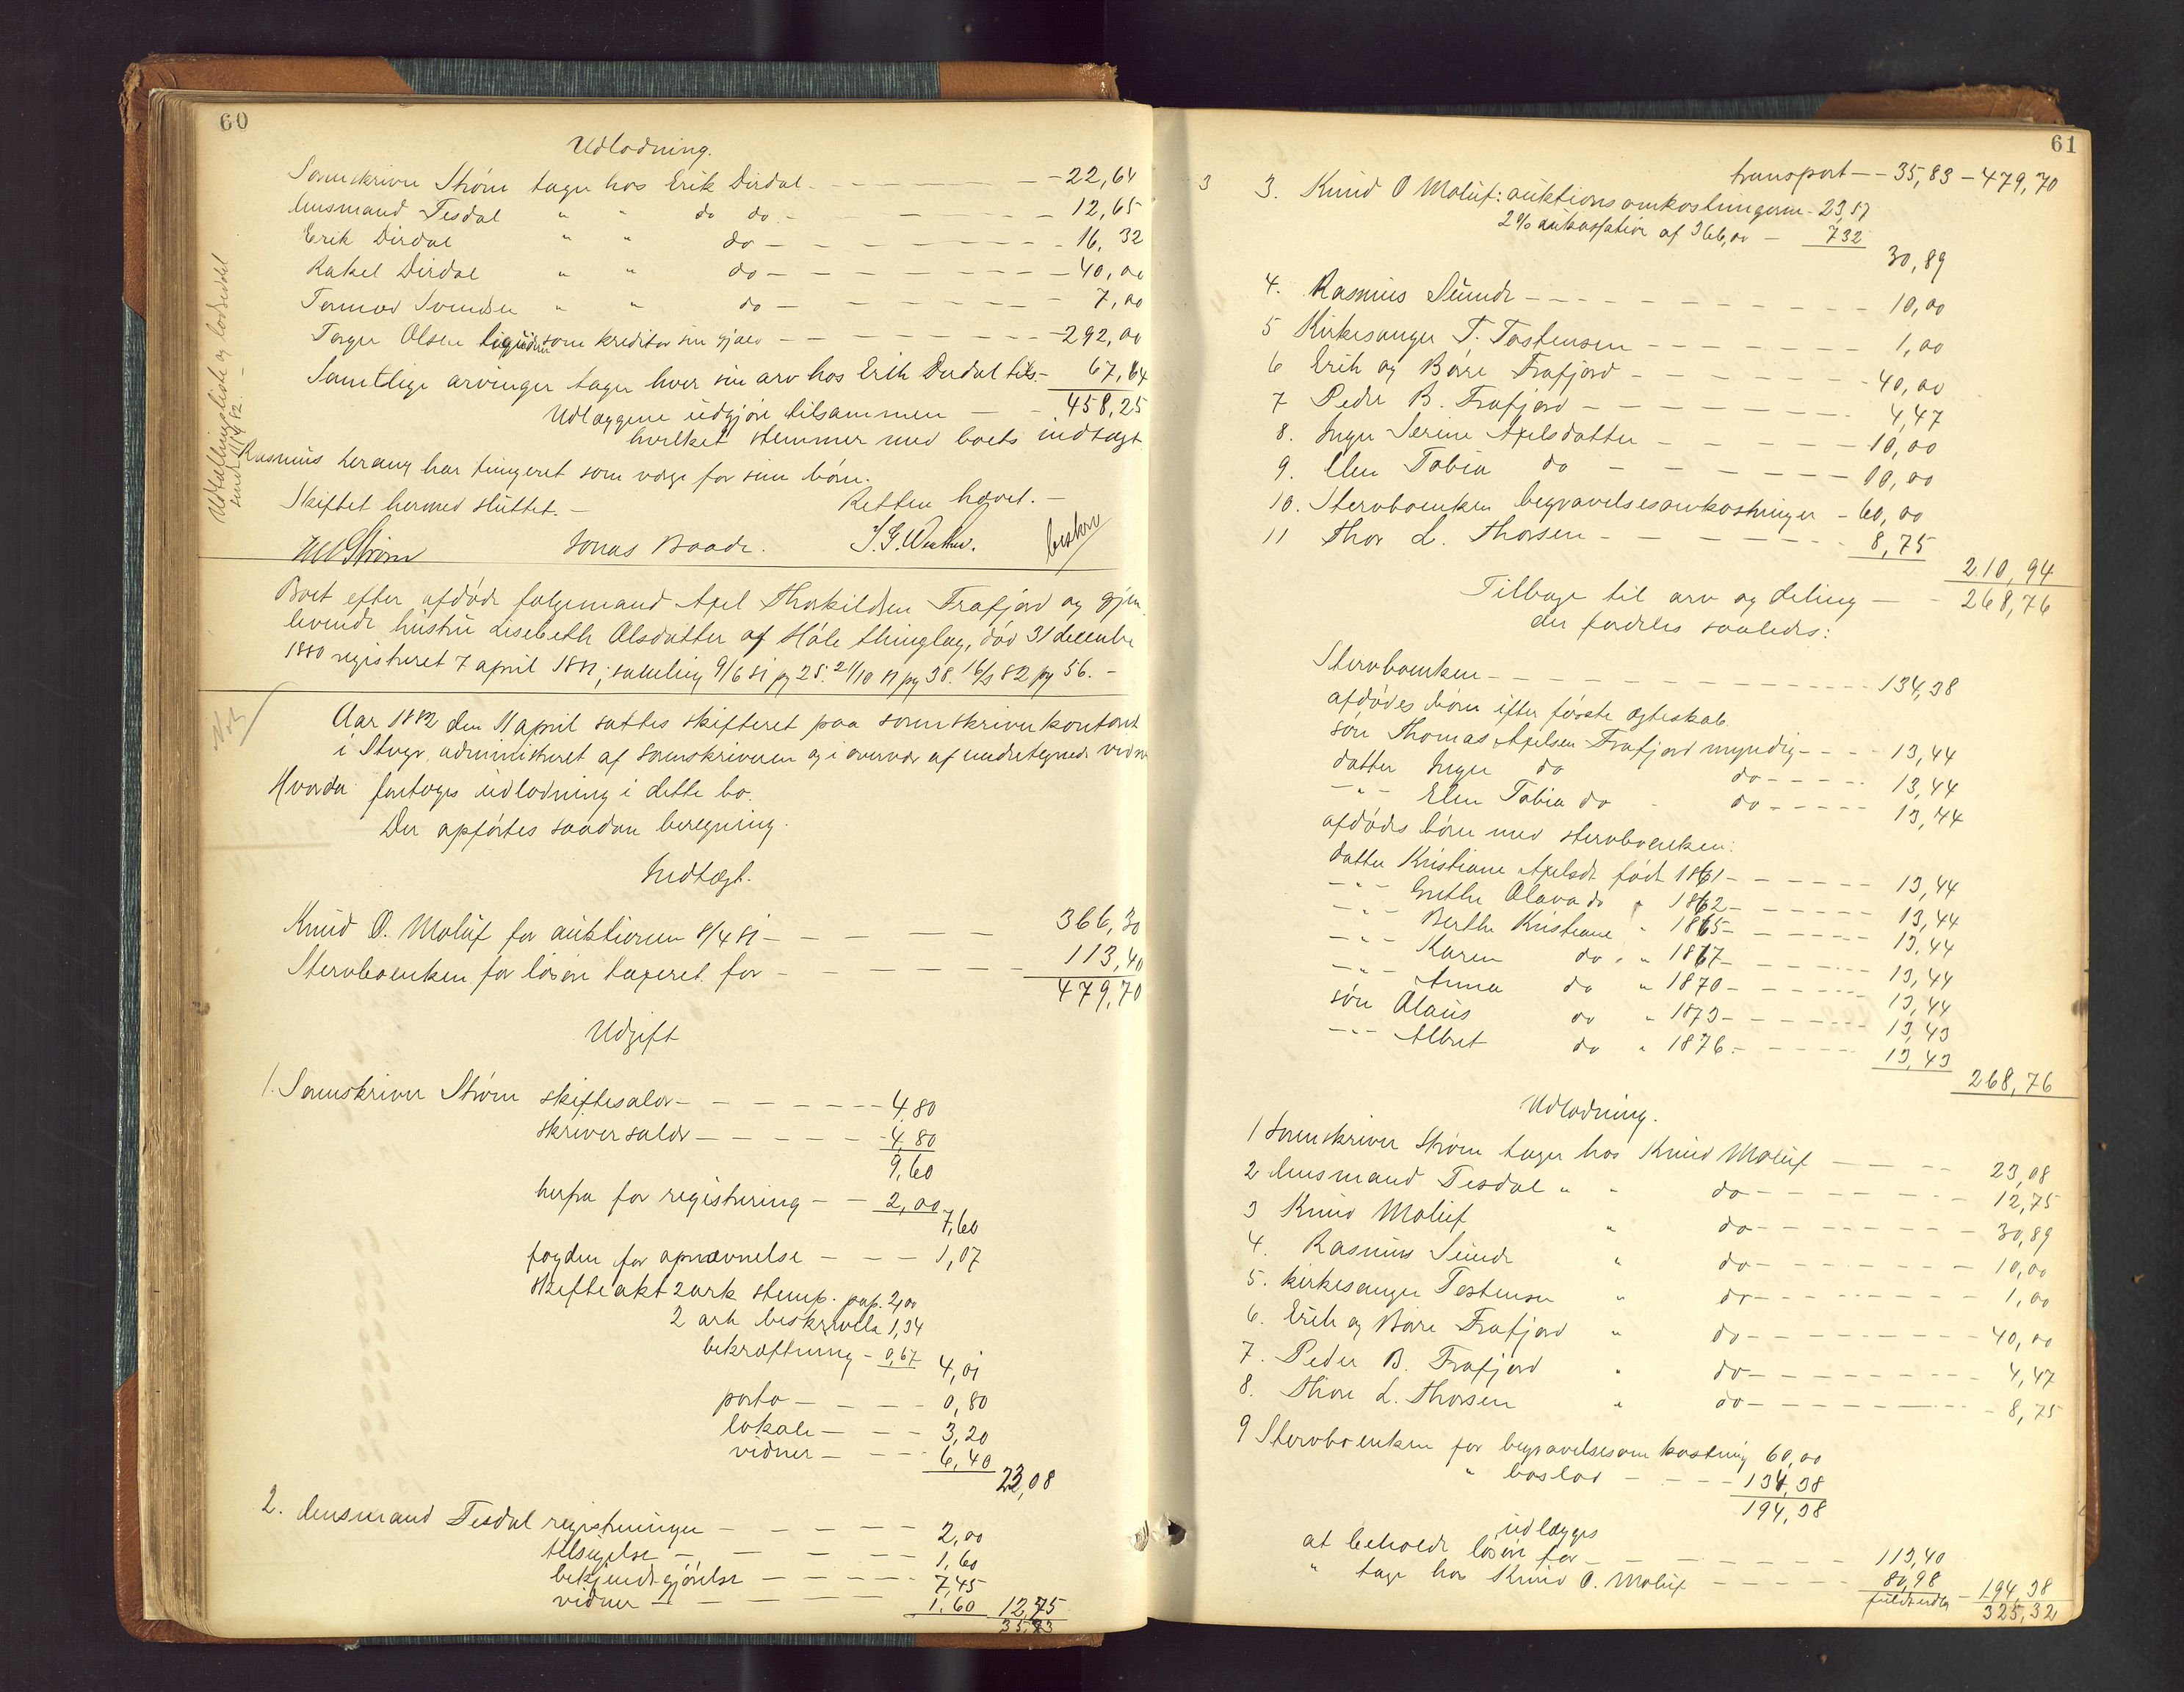 60
Udlodning.
Sorenskriver Strøm tager hos Erik Dirdal - 22,64
Lensmand Tesdal " " do do - 12,65
Erik Dirdal " " do - 16,32
Rakel Dirdal " " do - 40,00
Tormod Svendsen " " do - 7,00
Torger Olsen som kreditor sin gjæld - 292,00
Samtlige arvinger tager hver sin arv hos Erik Dirdal tils - 67,64
Udlæggene udgjøre tilsammen - 458,25
hvilket stemmer med boets indtægt
Rasmus har fungeret som værge for sine børn.
Skiftet hermed sluttet. - Retten hævet. -
Strøm Jonas Baade.
Udtællingsliste og lodseddel
Boet efter afdøde følgemand Axel Thorkildsen Frafjord og gjen
levende hustru Lisebeth Olsdatter af Høle thinglag, død 31 december
1880 registreret 7 april 1881; samling 9/6 81 pg 25. 21/10 81 pg 38. 16/3 82 pg 56. -
Aar 1882 den 11 april sattes skifteret paa sorenskriverkontoret
i Stege administreret af sorenskriveren og i overvær af undertegnede vidner
Hvorda foretoges udlodning i dette bo.
Der opførtes saadan beregning.
Indtægt.
Knud O. Moluf for auktionen 8/4 81 - 366,30
Stervboenken for løsøre taxeret for - 113,40
479,70
Udgift
1. Sorenskriver Strøm skiftesalær - 4,80
skriversalær - 4,80
9,60
herfra for registrering - 2,00
7,60
fogden for opnævnelse - 1,07
skifteakt 2 ark stemp. pap. 2,00
2 ark beskrivelse 1,34
bekræftning - 0,67 4,01
porto - 0,80
lokale - 3,20
vidner - 6,40
23,08
2. Lensmand Tesdal registreringen - 2,00
tilsigelse - 1,60
bekjendtgjørelse - 7,45
vidner - 1,60 12,75
35,83
61
transport - 35,83 - 479,70
3 3. Knud O Moluf: auktionsomkostningerne - 23,57
2% inkassation af 366,00 - 7,32
30,89
4. Rasmus Sunde - 10,00
5 Kirkesanger T. Tostensen - 1,00
6 Erik og Børe Frafjord - 40,00
7 Peder B. Frafjord - 4,47
8. Inger Serine Axelsdatter - 10,00
9. Elen Tobia do - 10,00
10. Stervboenken begravelsesomkostninger - 60,00
11 Thor L. Thorsen - 8,75
210,94
Tilbage til arv og deling - 268,76
der fordeles saaledes:
Stervboenken - 134,38
afdødes børn efter første ægteskab
søn Thomas Axelsen Frafjord myndig - 13,44
datter Inger do do - 13,44
- " - Elen Tobia do do - 13,44
afdødes børn med stervboenken:
datter Kristiane Axelsdt født 1861 - 13,44
- " - Grethe Olava do " 1862 - 13,44
- " - Berthe Kristiane " 1865 - 13,44
- " - Karen do " 1867 - 13,44
- " - Anna do " 1870 - 13,44
søn Olaus do " 1873 - 13,43
- " - Albret do " 1876 - 13,43
268,76
Udlodning.
1 Sorenskriver Strøm tager hos Knud Moluf - 23,08
2 Lensmand Tesdal " " do - 12,75
3 Knud Moluf " do - 30,89
4. Rasmus Sunde " do - 10,00
5. kirkesanger Tostensen " do - 1,00
6. Erik og Børe Frafjord " do - 40,00
7. Peder B. Frafjord " do - 4,47
8. Thore L. Thorsen " do - 8,75
9 Stervboenken for begravelsesomkostning 60,00
" boslod - 134,38
194,38
udlægges
at beholde løsøre for - 113,40
" tage hos Knud O. Moluf - 80,98 - 194,38
325,32